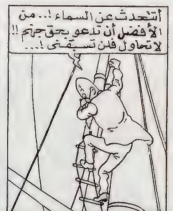 أتتحدث عن السماء!... من
الأفضل أن تدعو بحق جهنم!!
لا تحاول فلن تستبقني!...